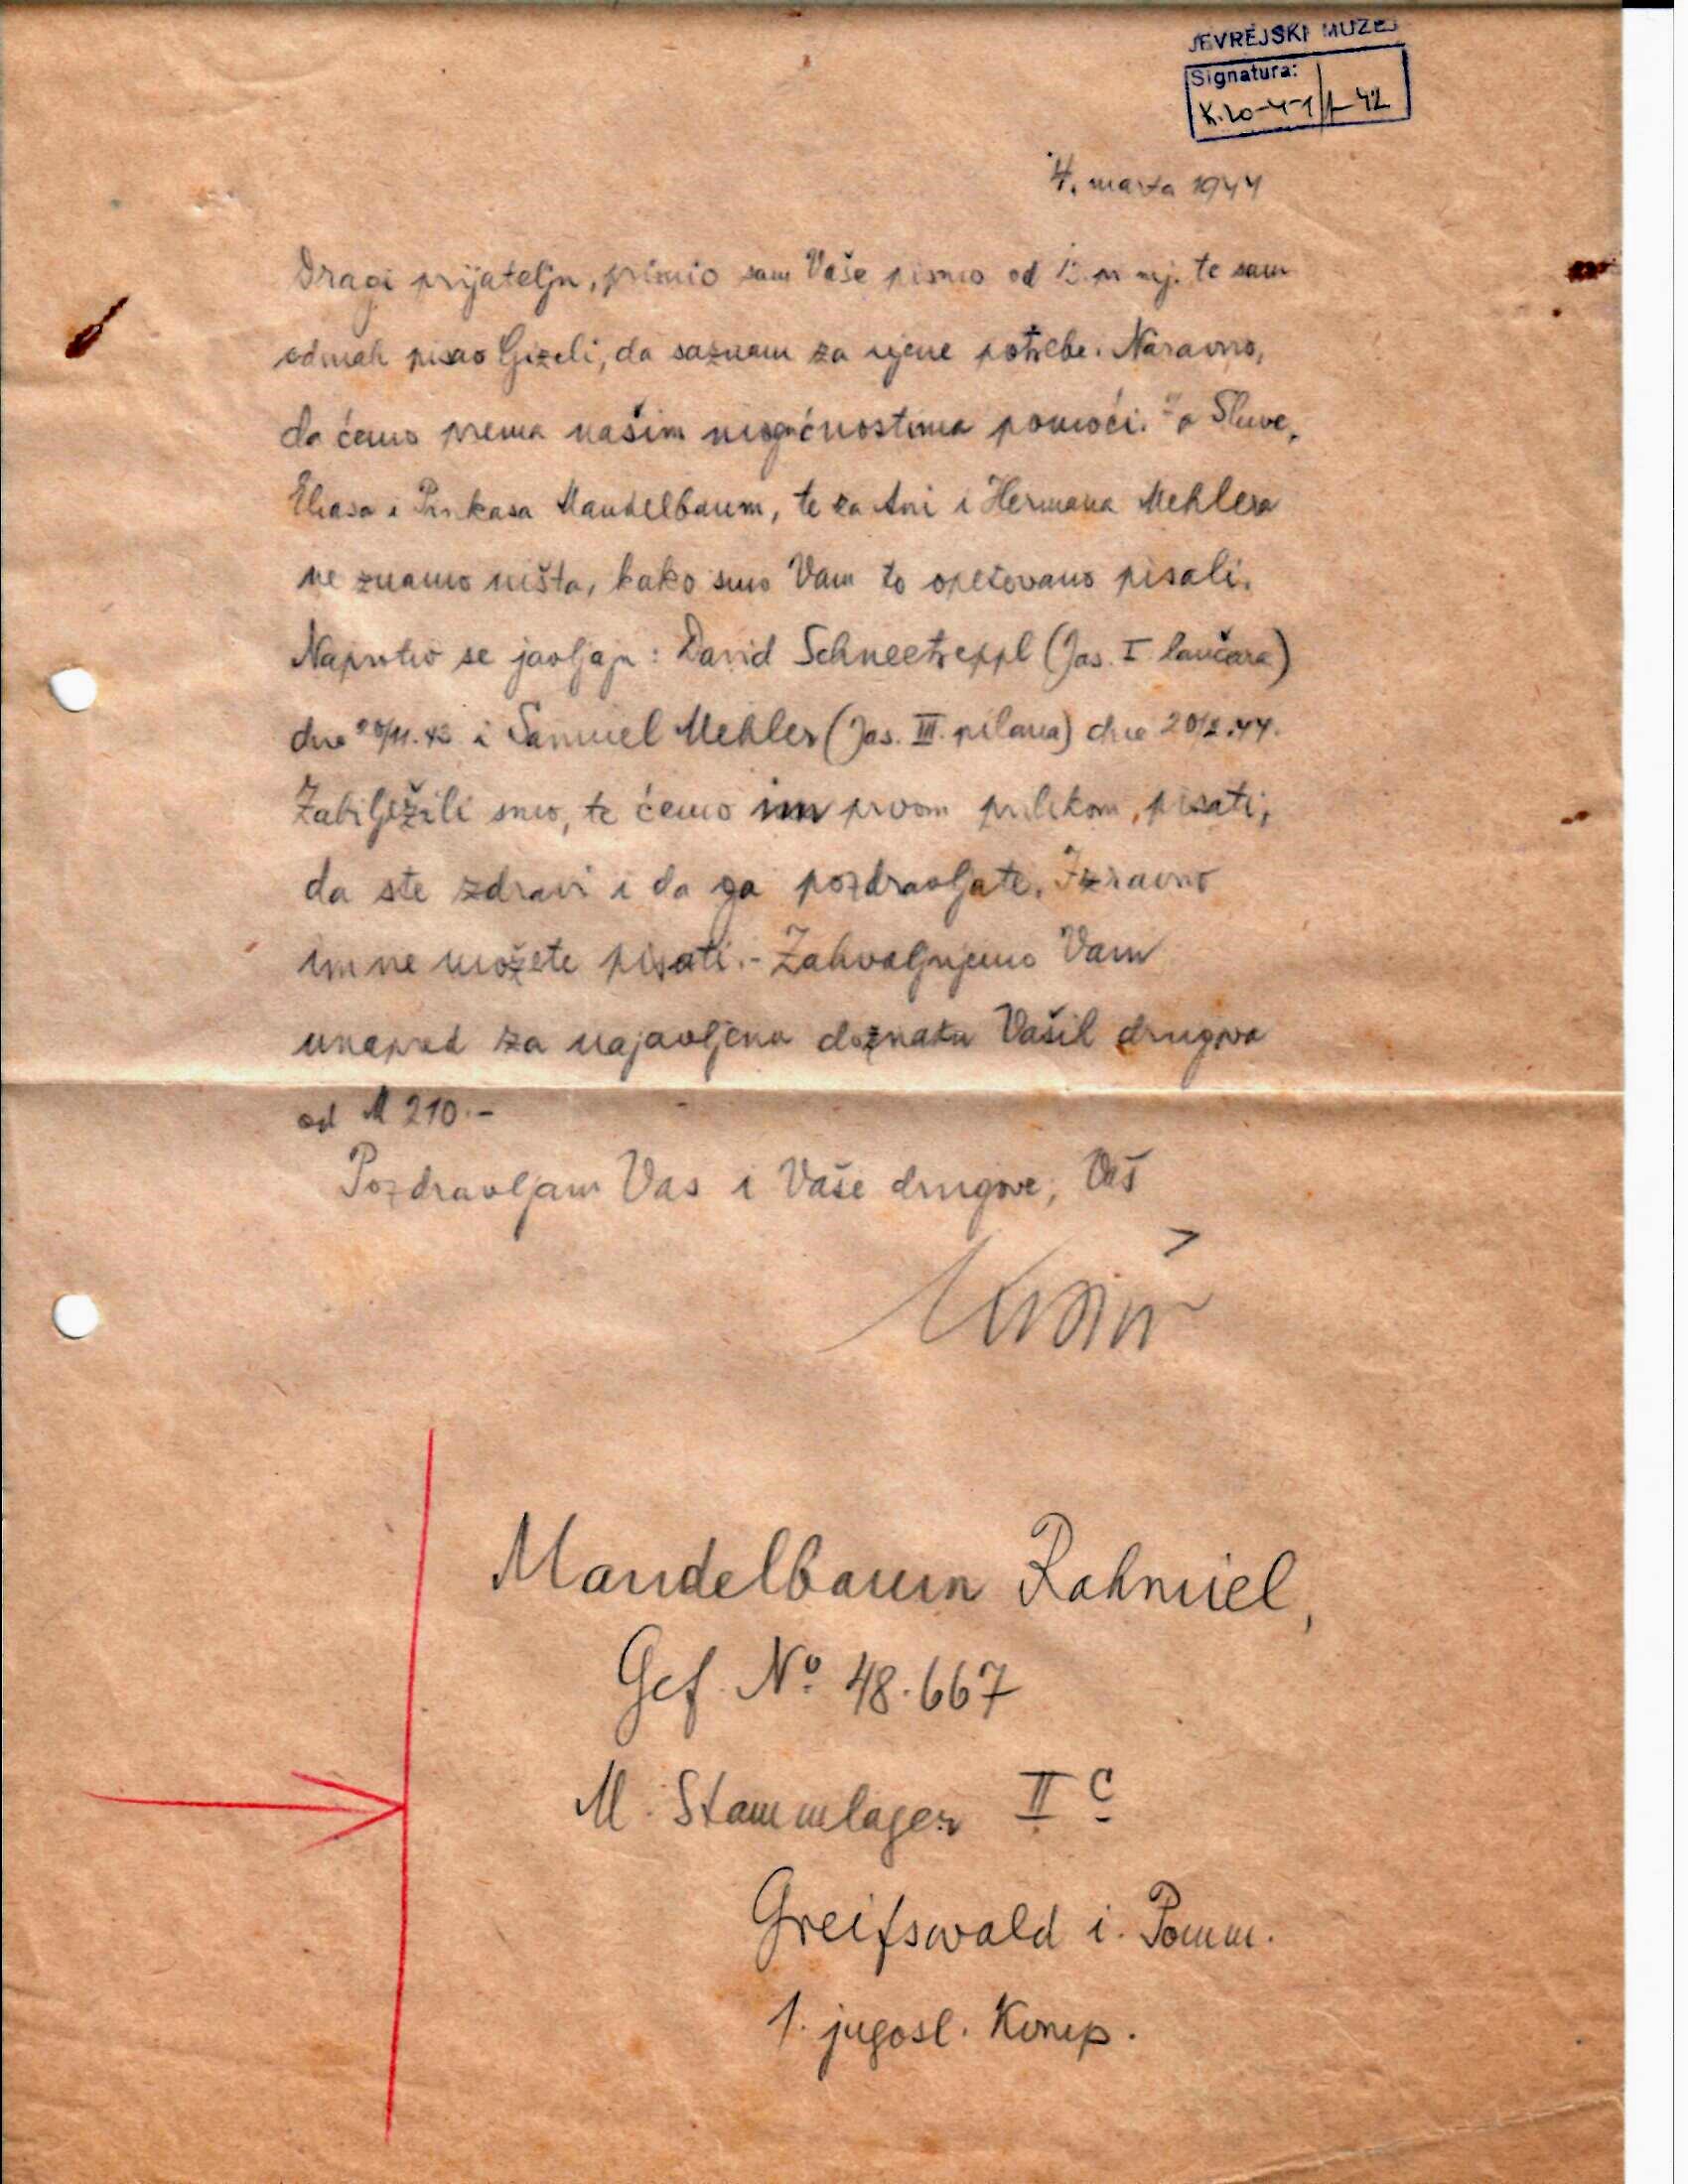 JEVREJSKI MUZEJ
Signatura:
K.20-4-1/1-42
4. marta 1944
Dragi prijatelju, primio sam Vaše pismo od pr. mj. te sam
odmah pisao Gizeli, da saznam za njene potrebe. Naravno,
da ćemo prema našim mogućnostima pomoći. Za
Eliasa i Pinkasa Mandelbaum, te za Ani i Hermana Mehlera
ne znamo ništa, kako smo Vam to opetovano pisali.
Naprotiv se javljaju: David Schneetreppl (Jas. I lančara)
dne 20/11.43 i Samuel Mehler (Jas. III. pilana) dne 20/2.44.
Zabilježili smo, te ćemo im prvom prilikom, pisati,
da ste zdravi i da ga pozdravljate. Izravno
im ne možete pisati.- Zahvaljujemo Vam
unapred za najavljenu doznaku Vaših drugova
od M 210.-
Pozdravljam Vas i Vaše drugove, Vaš
Mandelbaum Rahmiel,
Gef. Nº 48.667
M. Stammlager II C
Greifswald i. Pomm.
1. jugosl. Komp.